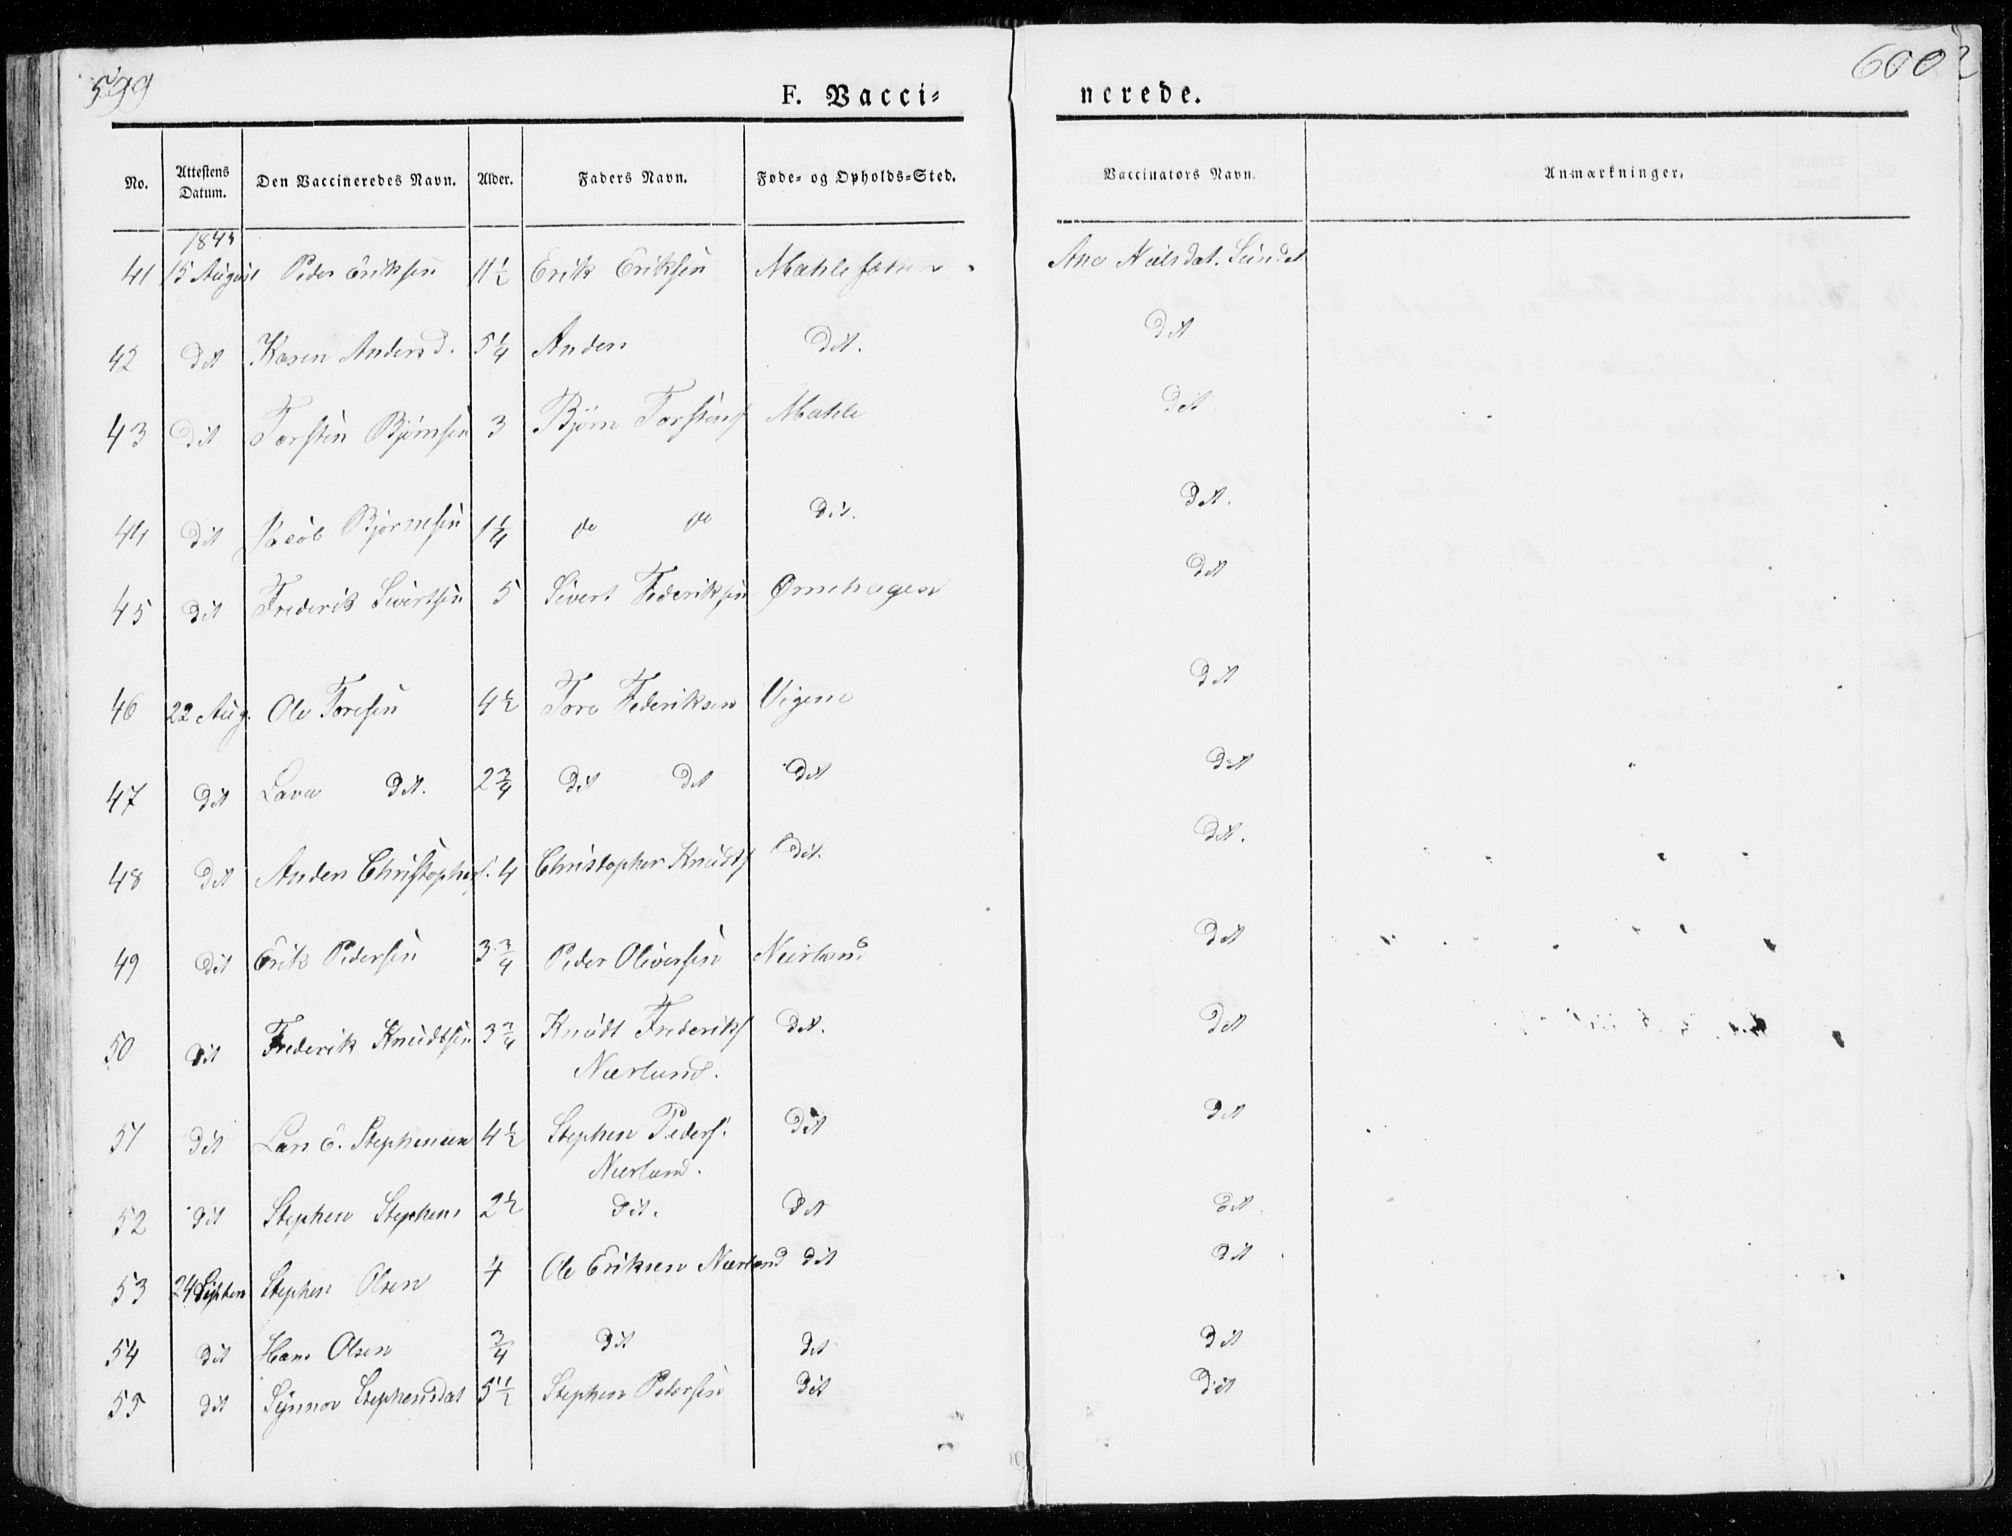 599
600
F. Vacci=
nerede.
No. Attestens Datum. Den Vaccineredes Navn. Alder. Faders Navn. Føde= og Opholds=Sted. Vaccinators Navn. Anmærkninger.
41 15 August Peder Eriksen 11½ Erik Eriksen Ane Neilsdat. Sundet
42 dit Karen Andersd. 5¼ Anders dit. dit
43 dit Torsten Bjørnsen 3 Bjørn Torstens Mæhle dit
44 dit Jacob Bjørnesen 1¼ do do dit. dit.
45 dit Frederik Sivertsen 5 Sivert Federiksen Ørnehagen dit
46 22 Aug. Ole Toresen 4½ Tore Federiksen Vigene dit
47 dit Lava dit. 2¾ dit dit dit dit
48 dit Anders Christophers. 4 Christopher Knudts dit. dit.
49 dit Erik Pedersen 3¾ Peder Oliversen Nærland dit
50 dit Frederik Knudtsen 3¾ Knudt Frederiks dit. dit
Nærland.
51 dit Lars E. Stephensen 4½ Stephen Peders. dit dit
Nærland.
52 dit Stephen Stephens 2½ dit. dit dit.
53 24 Septem Stephen Olsen 4 Ole Eriksen Nærland dit dit
54 dit Hans Olsen ¾ dit dit dit
55 dit Synnov Stephensdat 5½ Stephen Pedersen dit dit